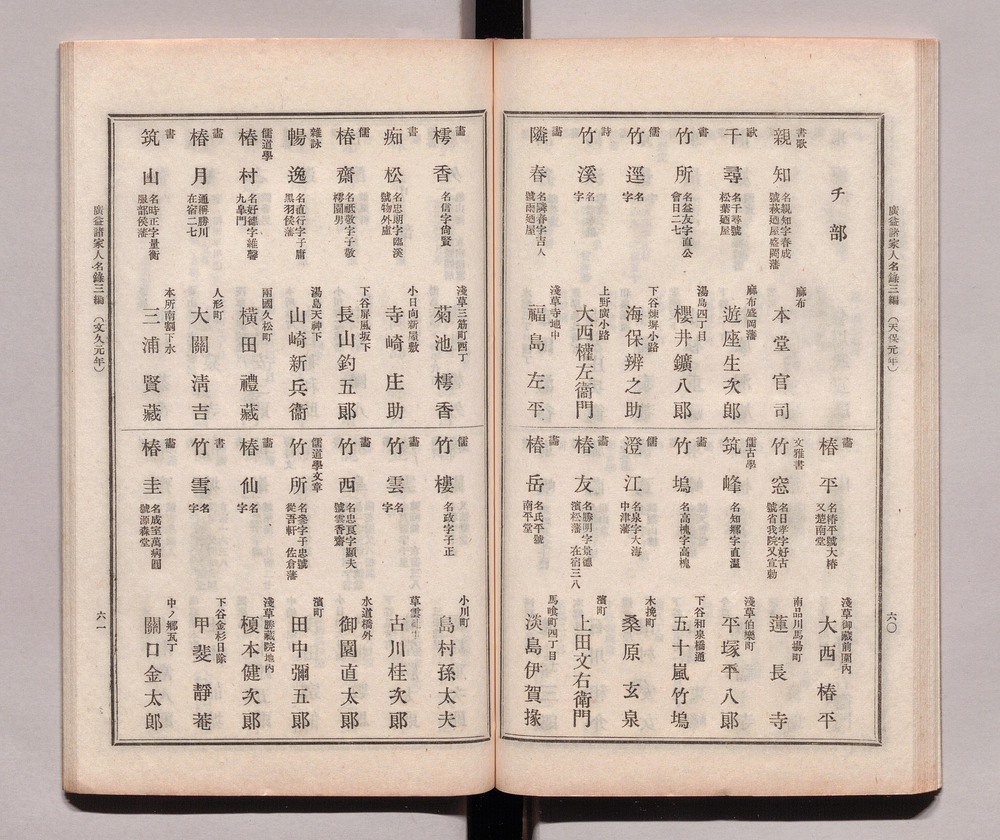 廣益諸家人名錄三編　（天保元年）
六〇
チ部
書歌
親知
名親知字春成
號萩廼屋盛岡藩
麻布
本堂官司
歌
千尋
名千尋號
松葉廼屋
麻布盛岡藩
遊座生次郞
書
竹所
名益友字直公
會日二七
湯島四丁目
櫻井鑛八郞
儒
竹逕
名
字
下谷煉塀小路
海保辨之助
詩
竹溪
名
字
上野廣小路
大西權左衞門
畵
隣春
名隣春字吉人
號雨廼屋
淺草寺地中
福島左平
畵
椿平
名椿平號大椿
又楚南堂
淺草御藏前圍內
大西椿平
文雅書
竹窓
名日孝字好古
號省我院又宣勒
南品川馬場町
蓮長寺
儒古學
筑峰
名知鄕字直溫
淺草伯樂町
平塚平八郞
畵
竹塢
名高槐字高槐
下谷和泉橋通
五十嵐竹塢
儒
澄江
名泉字大海
中津藩
木挽町
桑原玄泉
畵
椿友
名勝明字景德
濱松藩　在宿三八
濱町
上田文右衞門
畵
椿岳
名氏平號
南平堂
馬喰町四丁目
淡島伊賀掾
畵
樗香
名信字尙賢
淺草三筋町西丁
菊池樗香
書
痴松
名忠朔字臨溪
號物外廬
小日向新屋敷
寺崎庄助
儒
椿齋
名祗敬字子敬
樗園男
下谷屏風坂下
長山釣五郞
雜詠
暢逸
名直行字子庸
黑羽侯藩
湯島天神下
山崎新兵衞
儒道學
椿村
名好德字維馨
九皐門
兩國久松町
橫田禮藏
畵
椿月
通稱勝川
在宿二七
人形町
大關淸吉
書
筑山
名時正字量衡
服部侯藩
本所南割下水
三浦賢藏
儒
竹樓
名政字子正
小川町
島村孫太夫
畵
竹雲
名
字
草雲
古川桂次郞
畵
竹西
名忠夏字顯夫
號雲香齋
水道橋外
御園直太郞
儒道學文章
竹所
名參字子忠號
從吾軒　佐倉藩
濱町
田中彌五郞
畵
椿仙
名
字
淺草勝藏院地內
榎本健次郞
書
竹雪
名
字
下谷金杉日除
甲斐靜菴
畵
椿圭
名成室萬病圓
號源森堂
中ノ鄕瓦丁
關口金太郞
廣益諸家人名錄三編　（文久元年）
六一